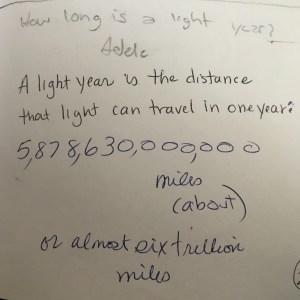 How long is a light year?
Adele
A light year is the distance
that light can travel in one year:
5,878,630,000,000
miles
(about)
or almost six trillion
miles